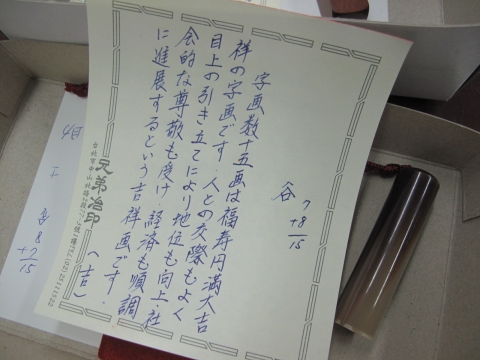 谷
7
+8
15
字画数十五画は福寿円満大吉
祥の字画です.人との交際もよく
目上の引き立てにより地位も向上.社
会的な尊敬も受け.経済も順調
に進展するという吉祥画です.
(吉)
兄弟治印
台北市中山北路
8
+7
15